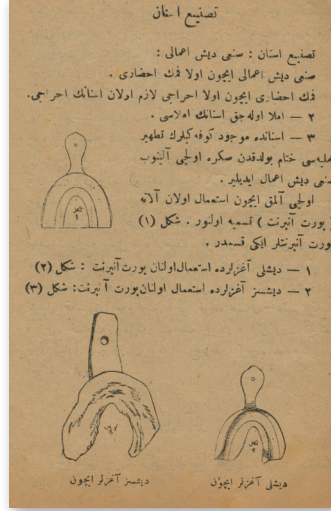 تصنیع اسنان
تصنیع اسنان : صنعی دیش اعمالی :
صنعی دیش اعمالی ایچون اولا فمك احضاری .
فمك احضاری ایچون اولا احراجی لازم اولان اسنانك احراجی.
٢ — املا اوله جق اسنانك املاسی .
٣ — اسنانده موجود كوفه كیلرك تطهیر
ملیه سی ختام بولدقدن صكره اولچی آلینوب
صنعی دیش اعمال ایدیلیر .
اولچی آلمق ایچون استعمال اولان آلاته
پورت آنپرنت ) تسمیه اولنور . شكل (١)
پورت آنپرنتلر ایكی قسمدر .
١ — دیشلی آغزلرده استعمال اولنان پورت آنپرنت : شكل (٢)
٢ — دیشسز آغزلرده استعمال اولنان پورت آنپرنت: شكل (٣)
دیشسز آغزلر ایچون
دیشلی آغزلر ایچون